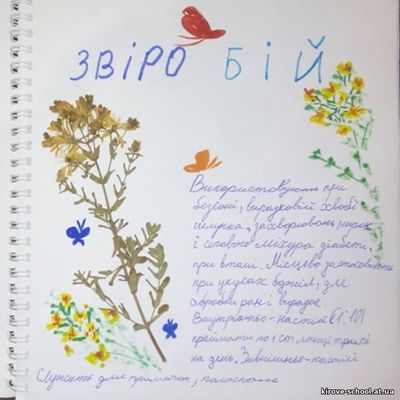 ЗВІРОБІЙ
Використовують при
безсоні, виразковій хвобі
шлунка, захворювань нирок
і сечового міхура діабеті,
при втомі. Місцево застосовують
при укусах бджіл, для
обробки ран і виразок.
Внутрішньо - настій (1:10)
приймати по 1 ст. ложці тричі
на день. Зовнішньо - настій
служить для примочок, полоскання
kirove-school.at.ua